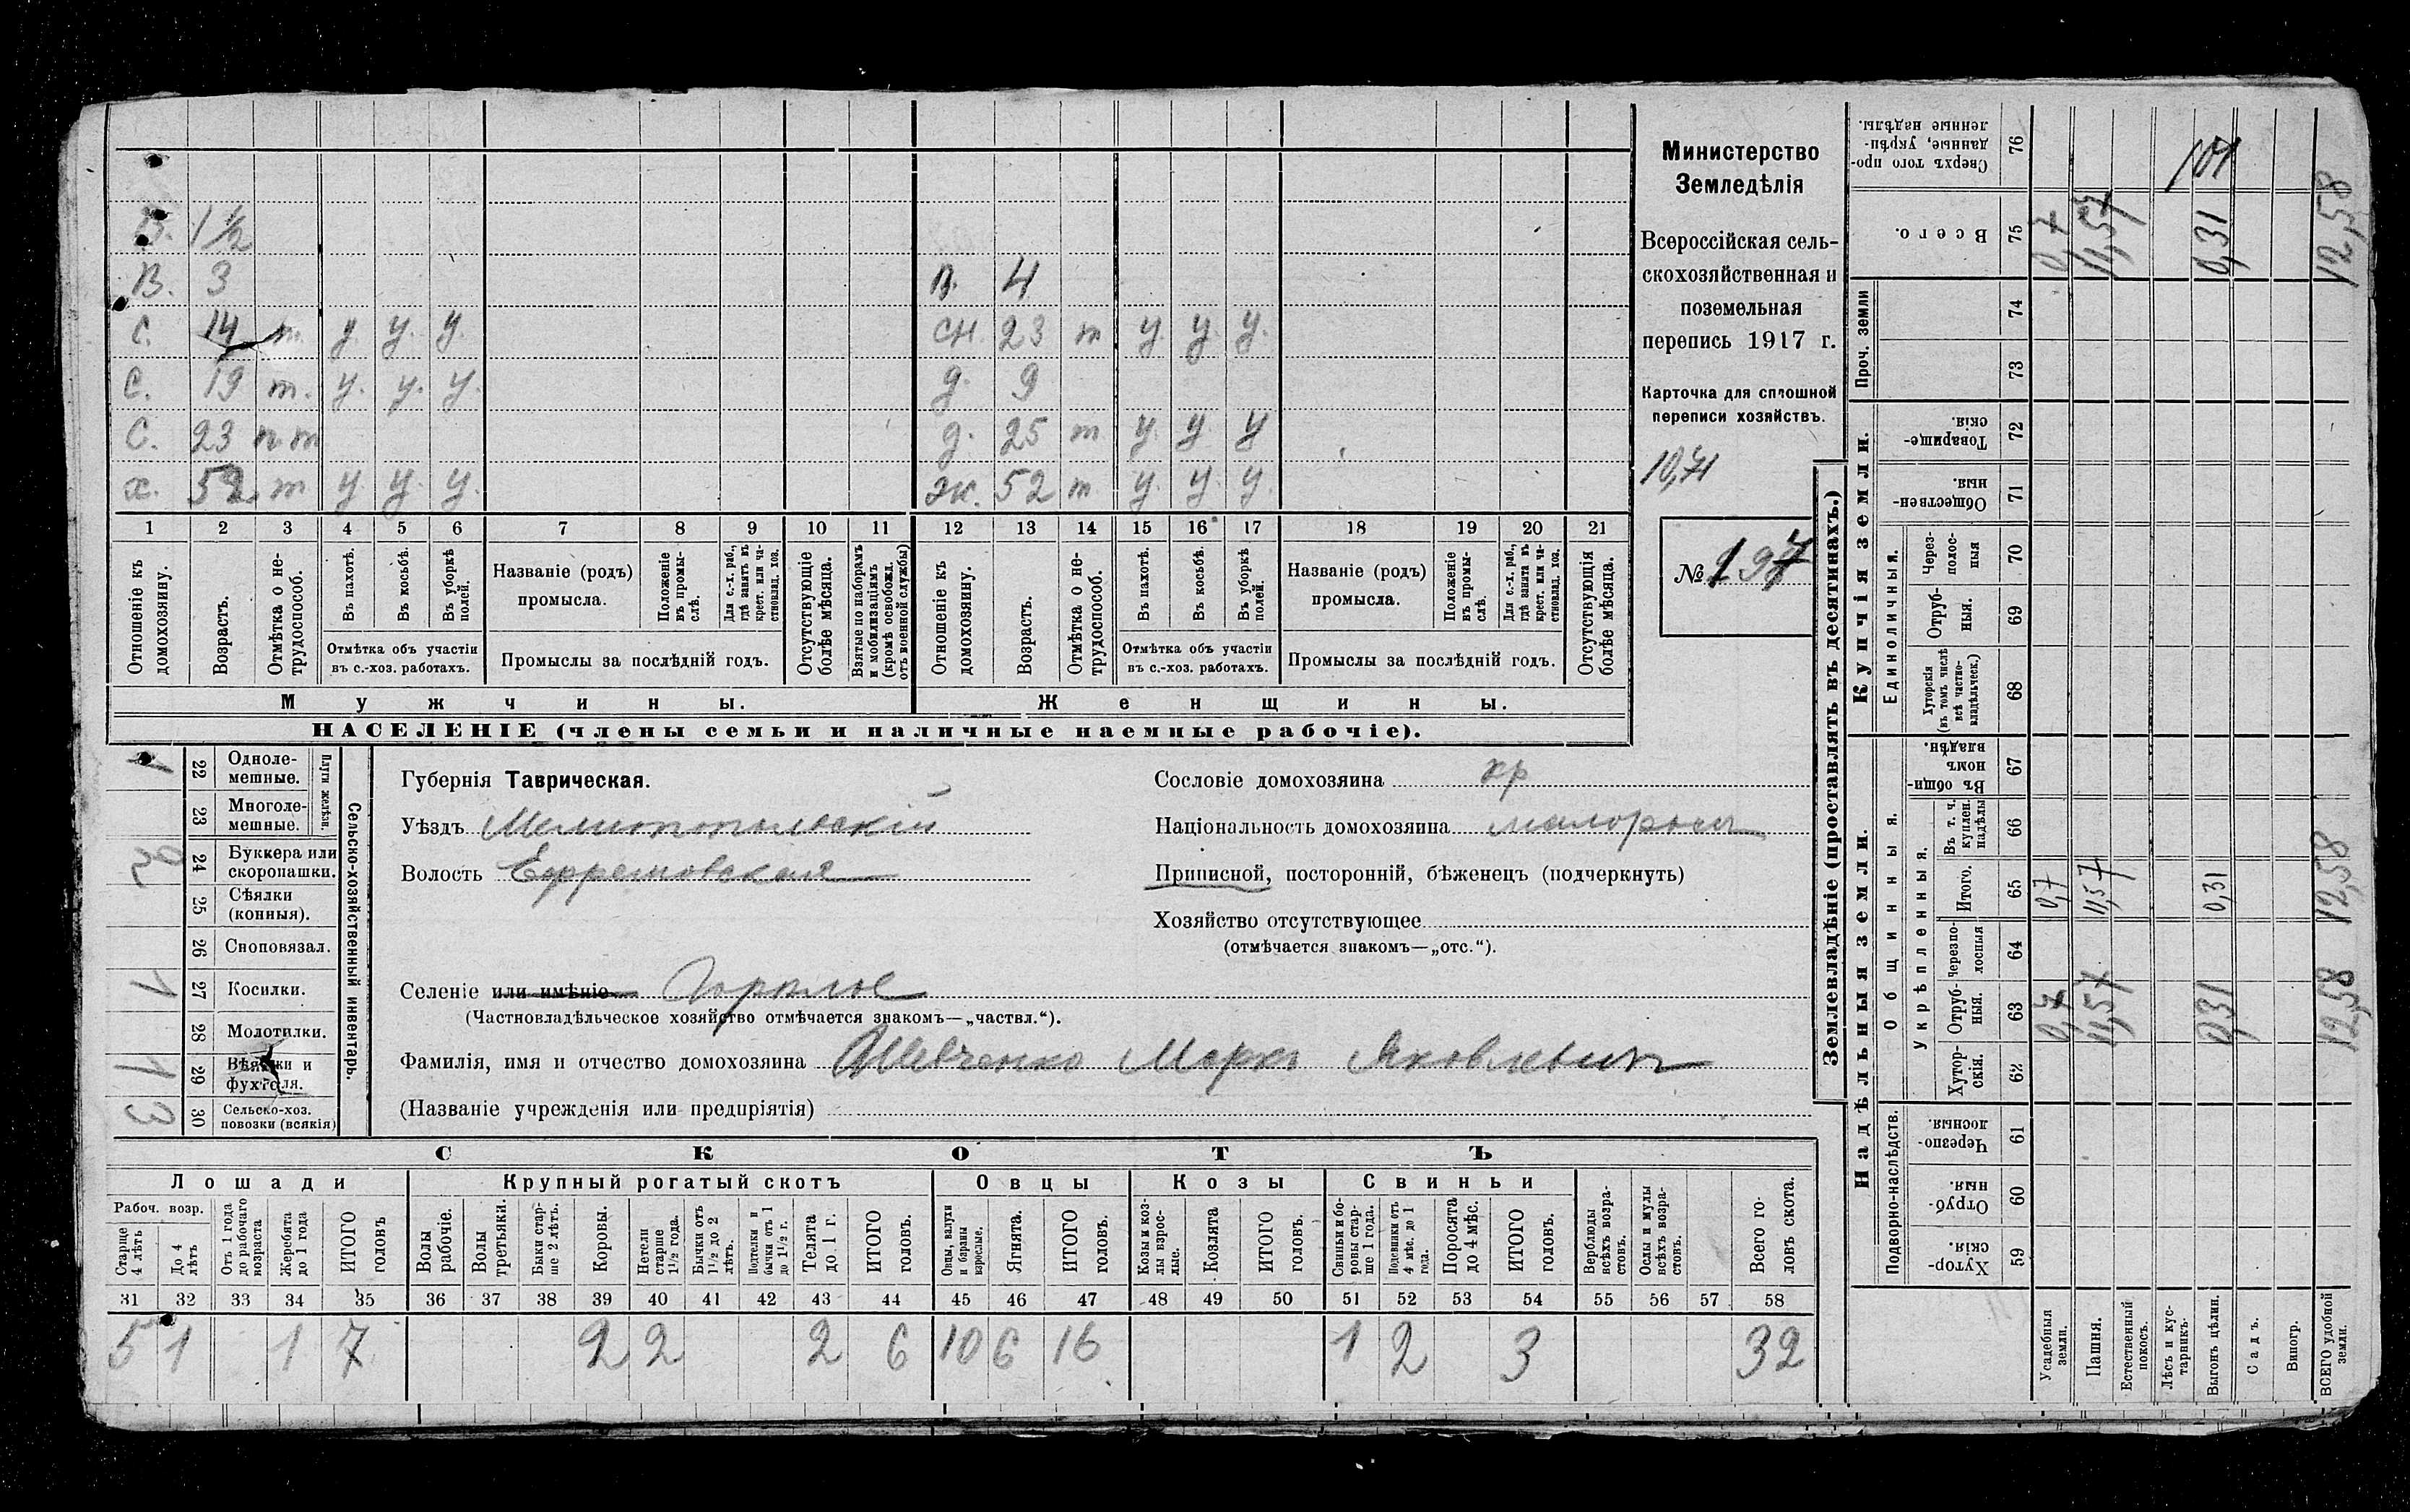 Министерство
Земледѣлія
Всероссійская сель-
скохозяйственная и
поземельная
перепись 1917 г.
Карточка для сплошной
переписи хозяйствъ.
10,71
№ 197
В. 1½
В. 3 В. 4
С. 14 т. у. у. у. сн. 23 т у. у. у.
С. 19 т. у. у. у. д. 9
С. 23 п т д. 25 т у. у. у
х. 52 т у у. у. ж. 52 т. у. у. у.
1 2 3 4 5 6 7 8 9 10 11 12 13 14 15 16 17 18 19 20 21
Отношеніе къ домохозяину.
Возрастъ.
Отмѣтка о не-трудоспособ.
Въ пахотѣ.
Въ косьбѣ.
Въ уборкѣ полей.
Отмѣтка объ участіи
въ с.-хоз. работахъ.
Названіе (родъ)
промысла.
Положеніе въ промы-слѣ.
Для с.-х. раб., гдѣ занятъ въ крест. или ча-стновлад. хоз.
Промыслы за послѣдній годъ.
Отсутствующіе болѣе мѣсяца.
Взятые по наборамъ и мобилизаціямъ (кромѣ освобожд. отъ военной службы)
Отношеніе къ домохозяину.
Возрастъ.
Отмѣтка о не-трудоспособ.
Въ пахотѣ.
Въ косьбѣ.
Въ уборкѣ полей.
Отмѣтка объ участіи
въ с.-хоз. работахъ.
Названіе (родъ)
промысла.
Положеніе въ промы-слѣ.
Для с.-х. раб., гдѣ занята въ крест. или ча-стновлад. хоз.
Промыслы за послѣдній годъ.
Отсутствующія болѣе мѣсяца.
Мужчины. Женщины.
НАСЕЛЕНІЕ (члены семьи и наличные наемные рабочіе).
Сельско-хозяйственный инвентарь.
Плуги желѣзн.
1 22 Одноле-мешные.
23 Многоле-мешные.
24 Буккера или скоропашки.
25 Сѣялки (конныя).
26 Сноповязал.
1 27 Косилки.
28 Молотилки.
1 29 Вѣялки и фухтеля.
3 30 Сельско-хоз. повозки (всякія)
Губернія Таврическая.
Уѣздъ Мелитопольскій
Волость Ефремовская
Селеніе или имѣніе Горѣлое
(Частновладѣльческое хозяйство отмѣчается знакомъ—„частвл.“).
Фамилія, имя и отчество домохозяина Шевченко Маркъ Яковлевичъ
(Названіе учрежденія или предпріятія)
Сословіе домохозяина кр
Національность домохозяина малороссъ
Приписной, посторонній, бѣженецъ (подчеркнуть)
Хозяйство отсутствующее
(отмѣчается знакомъ—„отс.“).
СКОТЪ
Лошади Крупный рогатый скотъ Овцы Козы Свиньи
Рабоч. возр.
Старше 4 лѣтъ
До 4 лѣтъ
Отъ 1 года до рабочаго возраста
Жеребята до 1 года
ИТОГО головъ
Волы рабочіе.
Волы третьяки.
Быки стар-ше 2 лѣтъ.
Коровы.
Нетели старше 1½ года.
Бычки отъ 1½ до 2 лѣтъ.
Подтелки и бычки отъ 1 до 1½ г.
Телята до 1 г.
ИТОГО головъ.
Овцы, валухи и бараны взрослые.
Ягнята.
ИТОГО головъ.
Козы и коз-лы взрос-лые.
Козлята
ИТОГО головъ.
Свиньи и бо-ровы стар-ше 1 года.
Подсвинки отъ 4 мѣс. до 1 года.
Поросята до 4 мѣс.
ИТОГО головъ.
Верблюды всѣхъ возра-стовъ.
Ослы и мулы всѣхъ возра-стовъ.
Всего го-ловъ скота.
31 32 33 34 35 36 37 38 39 40 41 42 43 44 45 46 47 48 49 50 51 52 53 54 55 56 57 58
5 1 1 7 2 2 2 6 10 6 16 1 2 3 32
Землевладѣніе (проставлять въ десятинахъ.)
Надѣльныя земли. Купчія земли. Проч. земли
Подворно-наслѣдств.
Общинныя.
Укрѣпленныя.
Единоличныя.
59 Хутор-скія.
60 Отруб-ныя.
61 Черезпо-лосныя.
62 Хутор-скія.
63 Отруб-ныя.
64 Черезпо-лосныя
65 Итого.
66 Въ т. ч. куплен. надѣлы
67 Въ общи-номъ владѣн.
68 Хуторскія (въ томъ числѣ всѣ частно-владѣльческ.)
69 Отруб-ныя.
70 Через-полос-ныя
71 Обществен-ныя.
72 Товарище-скія.
73
74
75 Всего.
76 Сверхъ того про-данные, укрѣп-ленные надѣлы.
Усадебныя земли. 0,7 0,7 0,7
Пашня. 11,57 11,57 11,57
Естественный покосъ.
Лѣсъ и кус-тарникъ.
Выгонъ цѣлин. 0,31 0,31 0,31
Садъ.
Виногр.
ВСЕГО удобной земли. 12,58 12,58 12,58
101